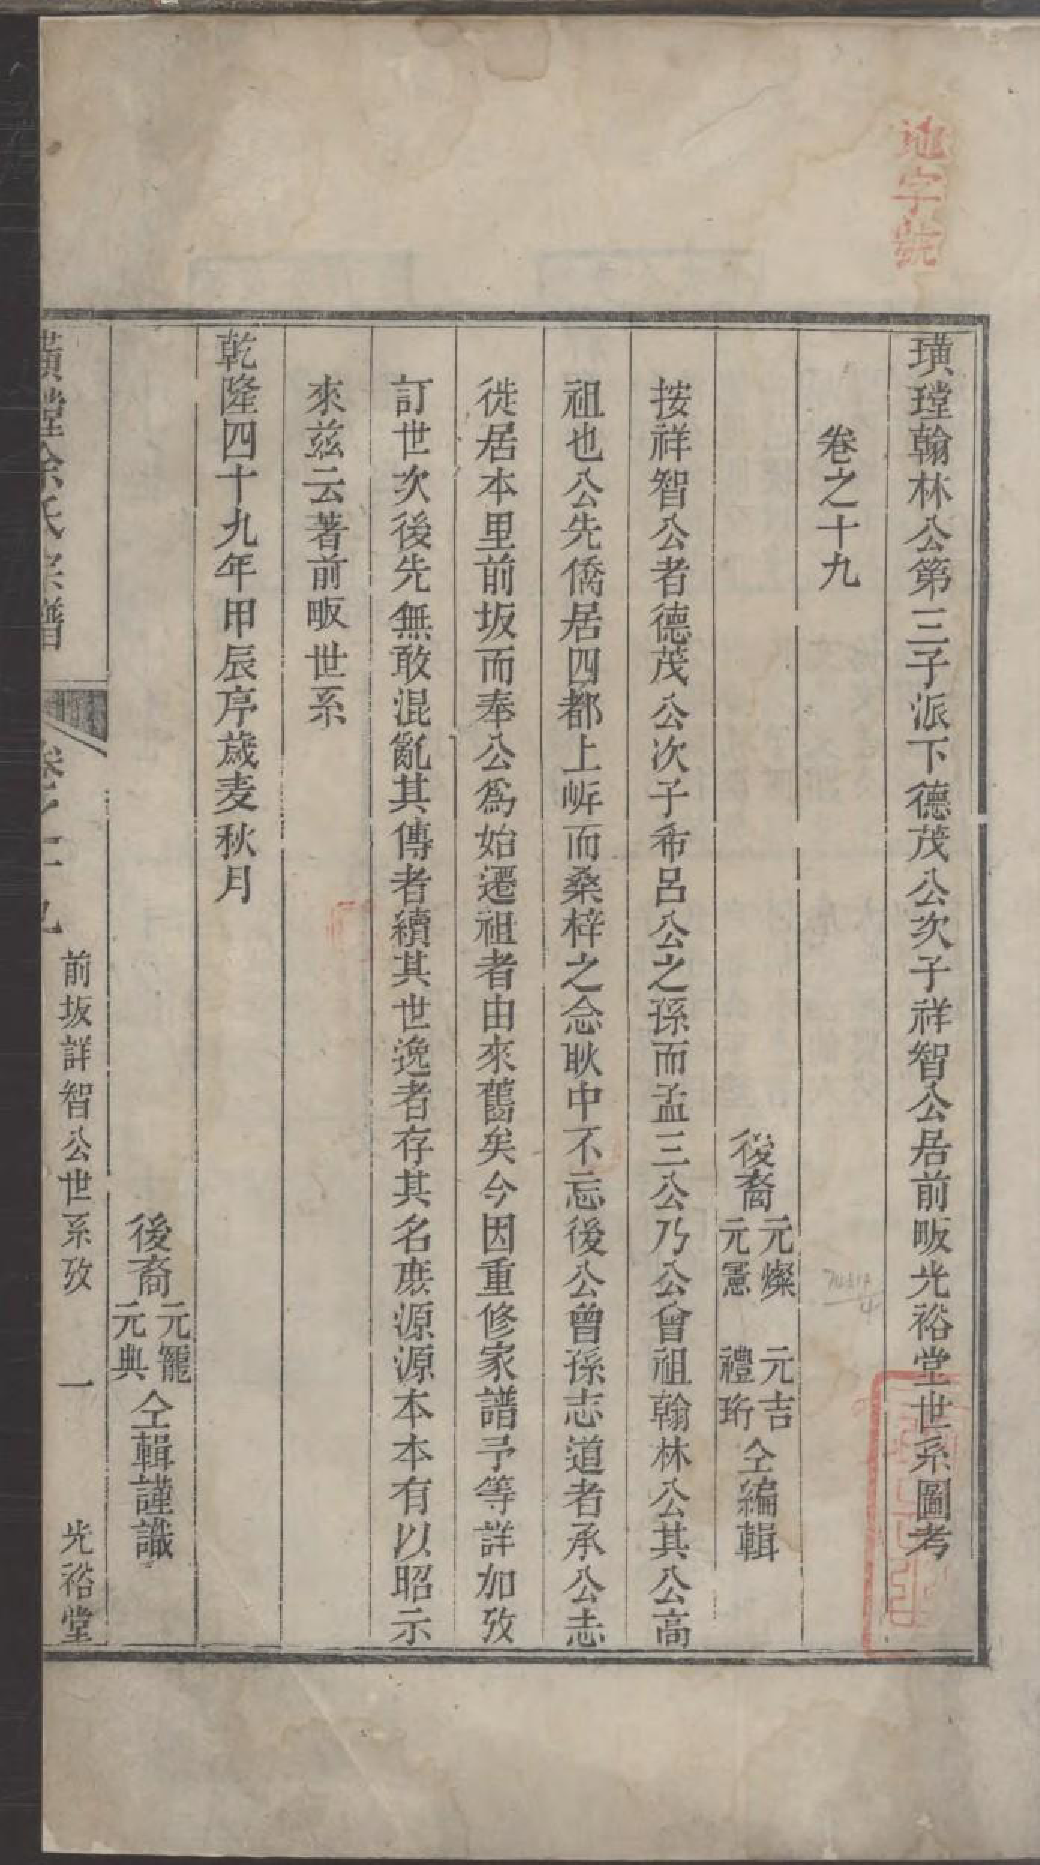 地字號
璜瑝翰林公第三子派下德茂公次子祥智公居前畈光裕堂世系圖考
卷之十九
後裔元燦元憲元吉禮珩仝編輯
按祥智公者德茂公次子希呂公之孫而孟三公乃公曾祖翰林公其公高
祖也公先僑居四都上㟁而桑梓之念耿中不忘後公曾孫志道者承公志
徙居本里前坂而奉公爲始遷祖者由來舊矣今因重修家譜予等詳加攷
訂世次後先無敢混亂其傳者續其世逸者存其名庶源源本本有以昭示
來兹云著前畈世系
乾隆四十九年甲辰序歲麦秋月
後裔元寵元典仝輯謹識
璜瑝余氏宗譜
卷之十九
前坂詳智公世系攷
一
光裕堂